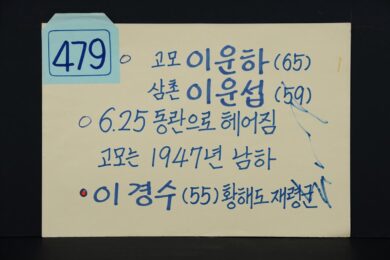 479
고모 이운하 (65)
삼촌 이운섭 (59)
6.25 동란으로 헤어짐
고모는 1947년 남하
이경수 (55) 황해도 재령군